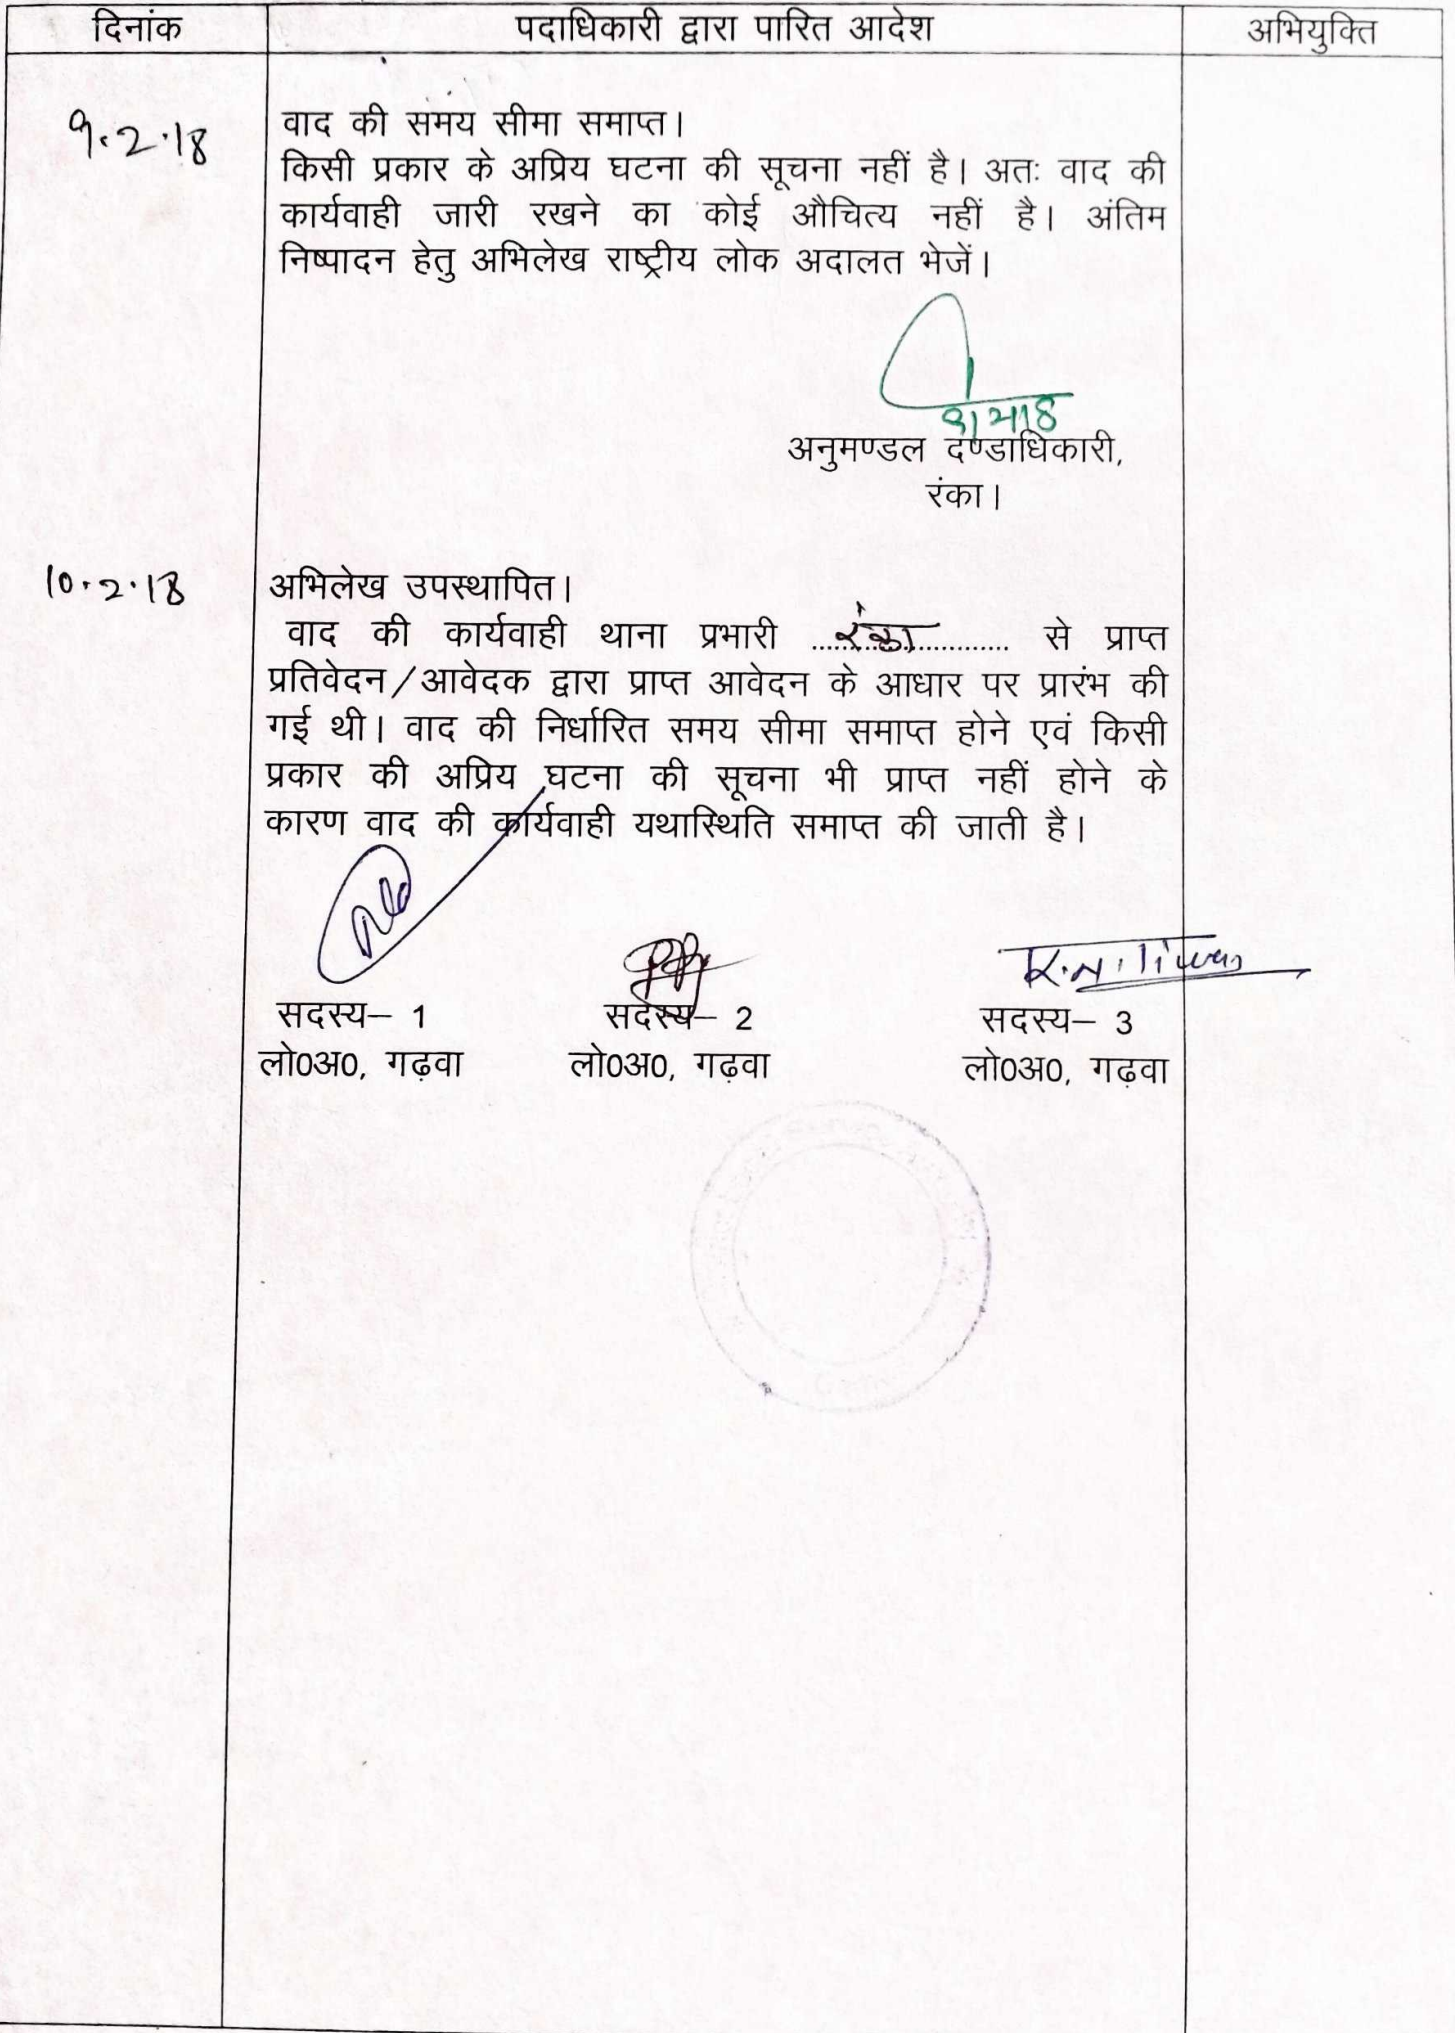 दिनांक पदाधिकारी द्वारा पारित आदेश अभियुक्ति
9.2.18 वाद की समय सीमा समाप्त।
किसी प्रकार के अप्रिय घटना की सूचना नहीं है। अतः वाद की
कार्यवाही जारी रखने का कोई औचित्य नहीं है। अंतिम
निष्पादन हेतु अभिलेख राष्ट्रीय लोक अदालत भेजें।
अनुमण्डल दण्डाधिकारी,
रंका।
10.2.18 अभिलेख उपस्थापित।
वाद की कार्यवाही थाना प्रभारी ....रंका.... से प्राप्त
प्रतिवेदन/आवेदक द्वारा प्राप्त आवेदन के आधार पर प्रारंभ की
गई थी। वाद की निर्धारित समय सीमा समाप्त होने एवं किसी
प्रकार की अप्रिय घटना की सूचना भी प्राप्त नहीं होने के
कारण वाद की कार्यवाही यथास्थिति समाप्त की जाती है।
सदस्य– 1 सदस्य– 2 सदस्य– 3
लो0अ0, गढ़वा लो0अ0, गढ़वा लो0अ0, गढ़वा